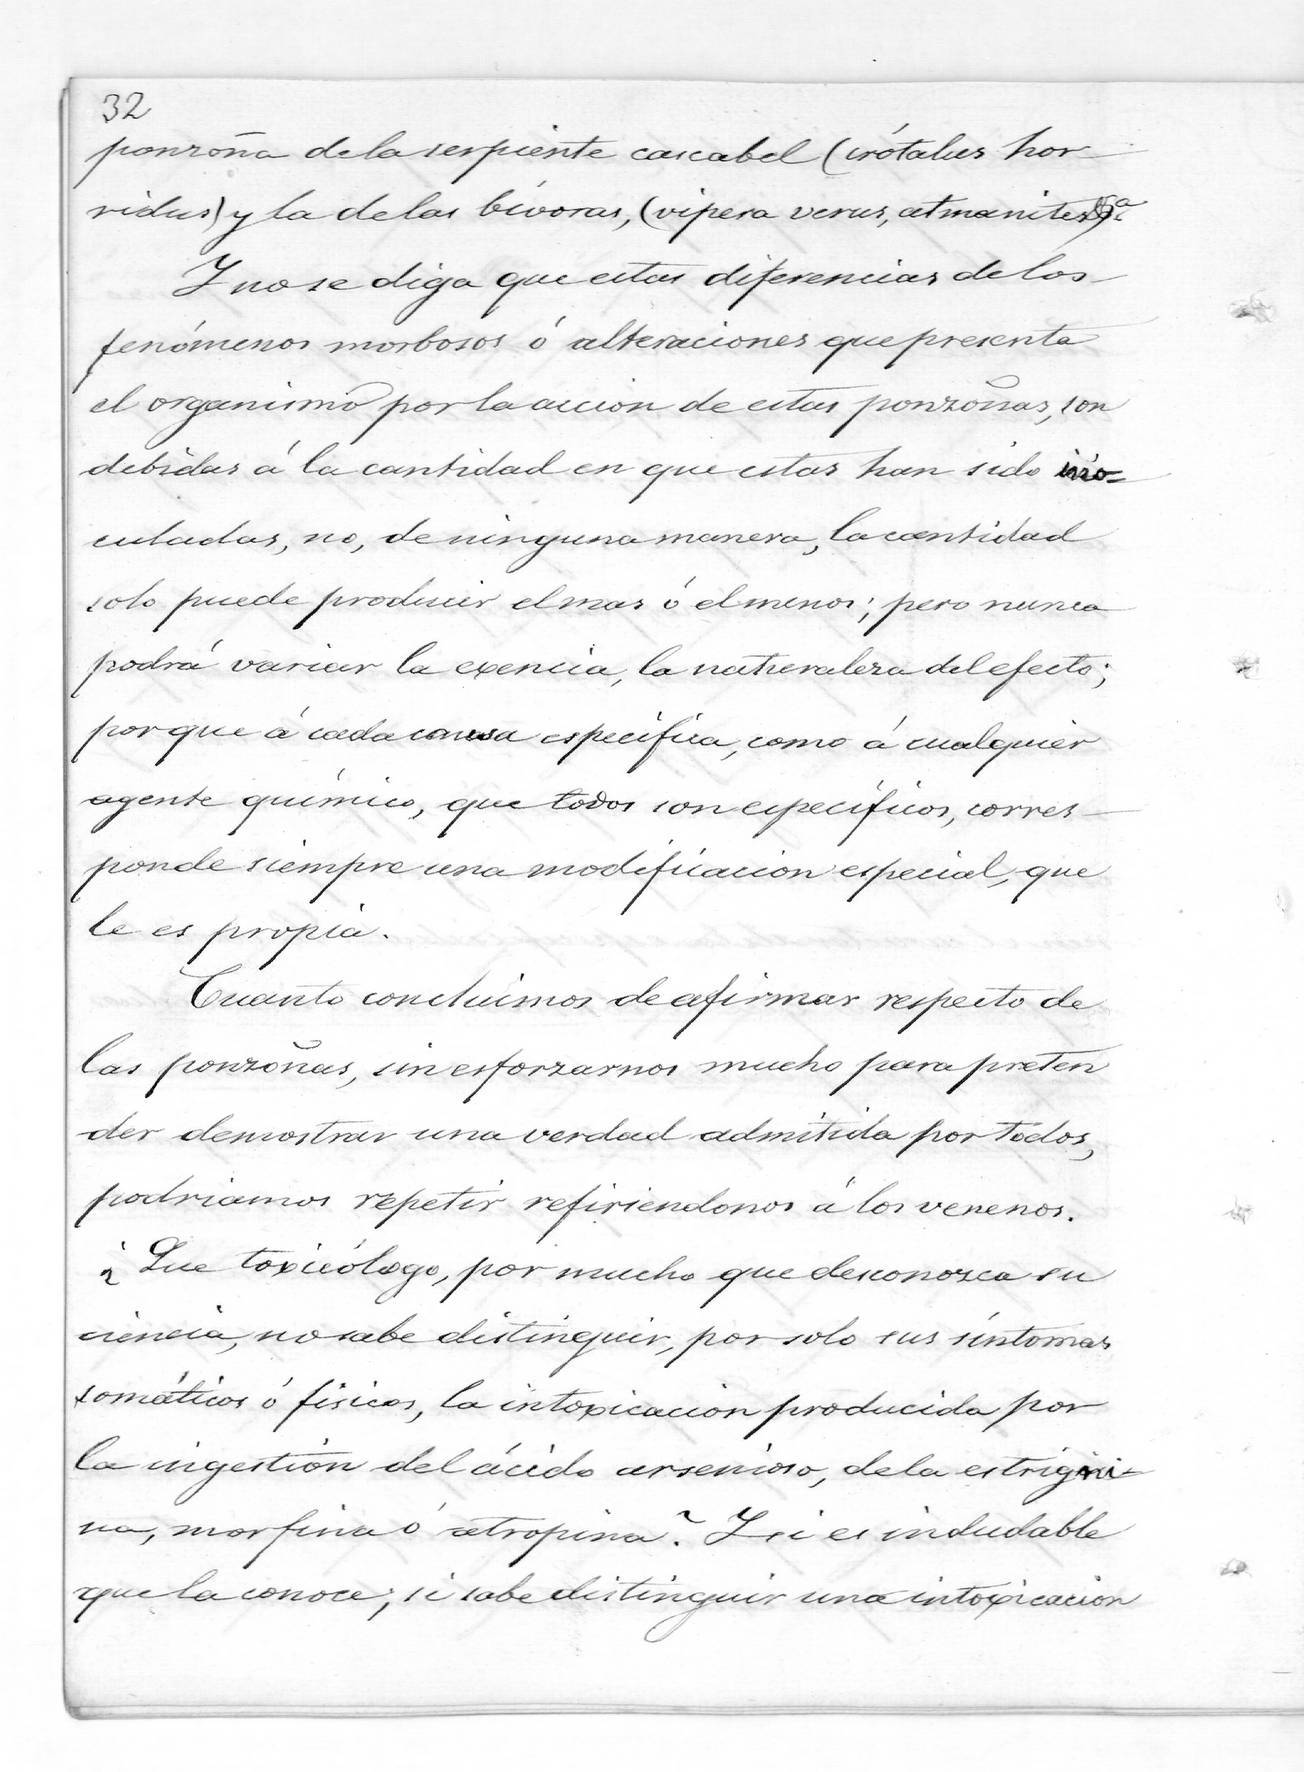 32
ponzoña de la serpiente cascabel (crótalus hor-
ridus) y la de las bívoras, (vipera verus, atmanites &ª
Y no se diga que estas diferencias de los
fenómenos morbosos ó alteraciones que presenta
el organismo por la accion de estas ponzoñas, son
debidas á la cantidad en que estas han sido ino-
culadas, no, de ninguna manera, la cantidad
solo puede producir el mas ó el menos; pero nunca
podrá variar la exencia, la naturaleza del efecto;
porque á cada causa especifica, como á cualquier
agente químico, que todos son específicos, corres-
ponde siempre una modificacion especial, que
le es propia.
Cuanto concluimos de afirmar respecto de
las ponzoñas, sin esforzarnos mucho para preten
der demostrar una verdad admitida por todos,
podriamos repetir refiriendonos á los venenos.
¿Que toxicólogo, por mucho que desconozca su
ciencia, no sabe distinguir, por solo sus síntomas
somáticos ó fisicos, la intoxicacion producida por
la ingestión del ácido arsenioso, de la estrigni-
na, morfina ó atropina? Y si es indudable
que la conoce; si sabe distinguir una intoxicacion